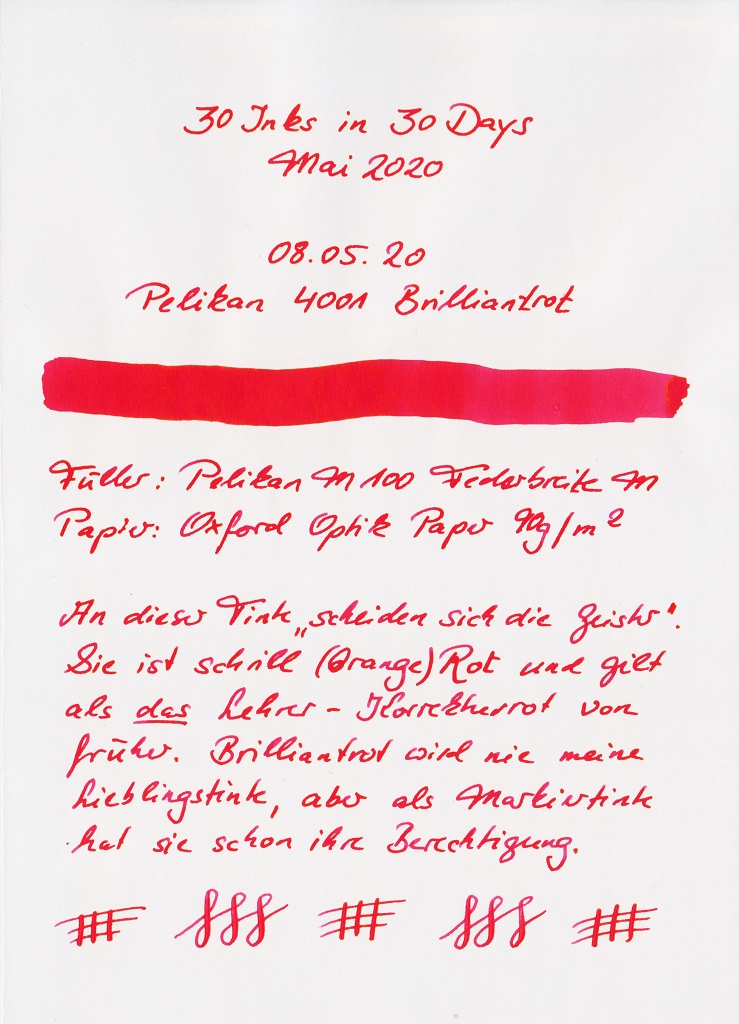 30 Inks in 30 Days
Mai 2020
08.05.20
Pelikan 4001 Brilliantrot
Füller: Pelikan M100 Federbreite M
Papier: Oxford Optik Paper 90g/m²
An dieser Tinte „scheiden sich die Geister".
Sie ist schrill (Orange)Rot und gilt
als das Lehrer-Korrekturrot von
früher. Brilliantrot wird nie meine
Lieblingstinte, aber als Markiertinte
hat sie schon ihre Berechtigung.